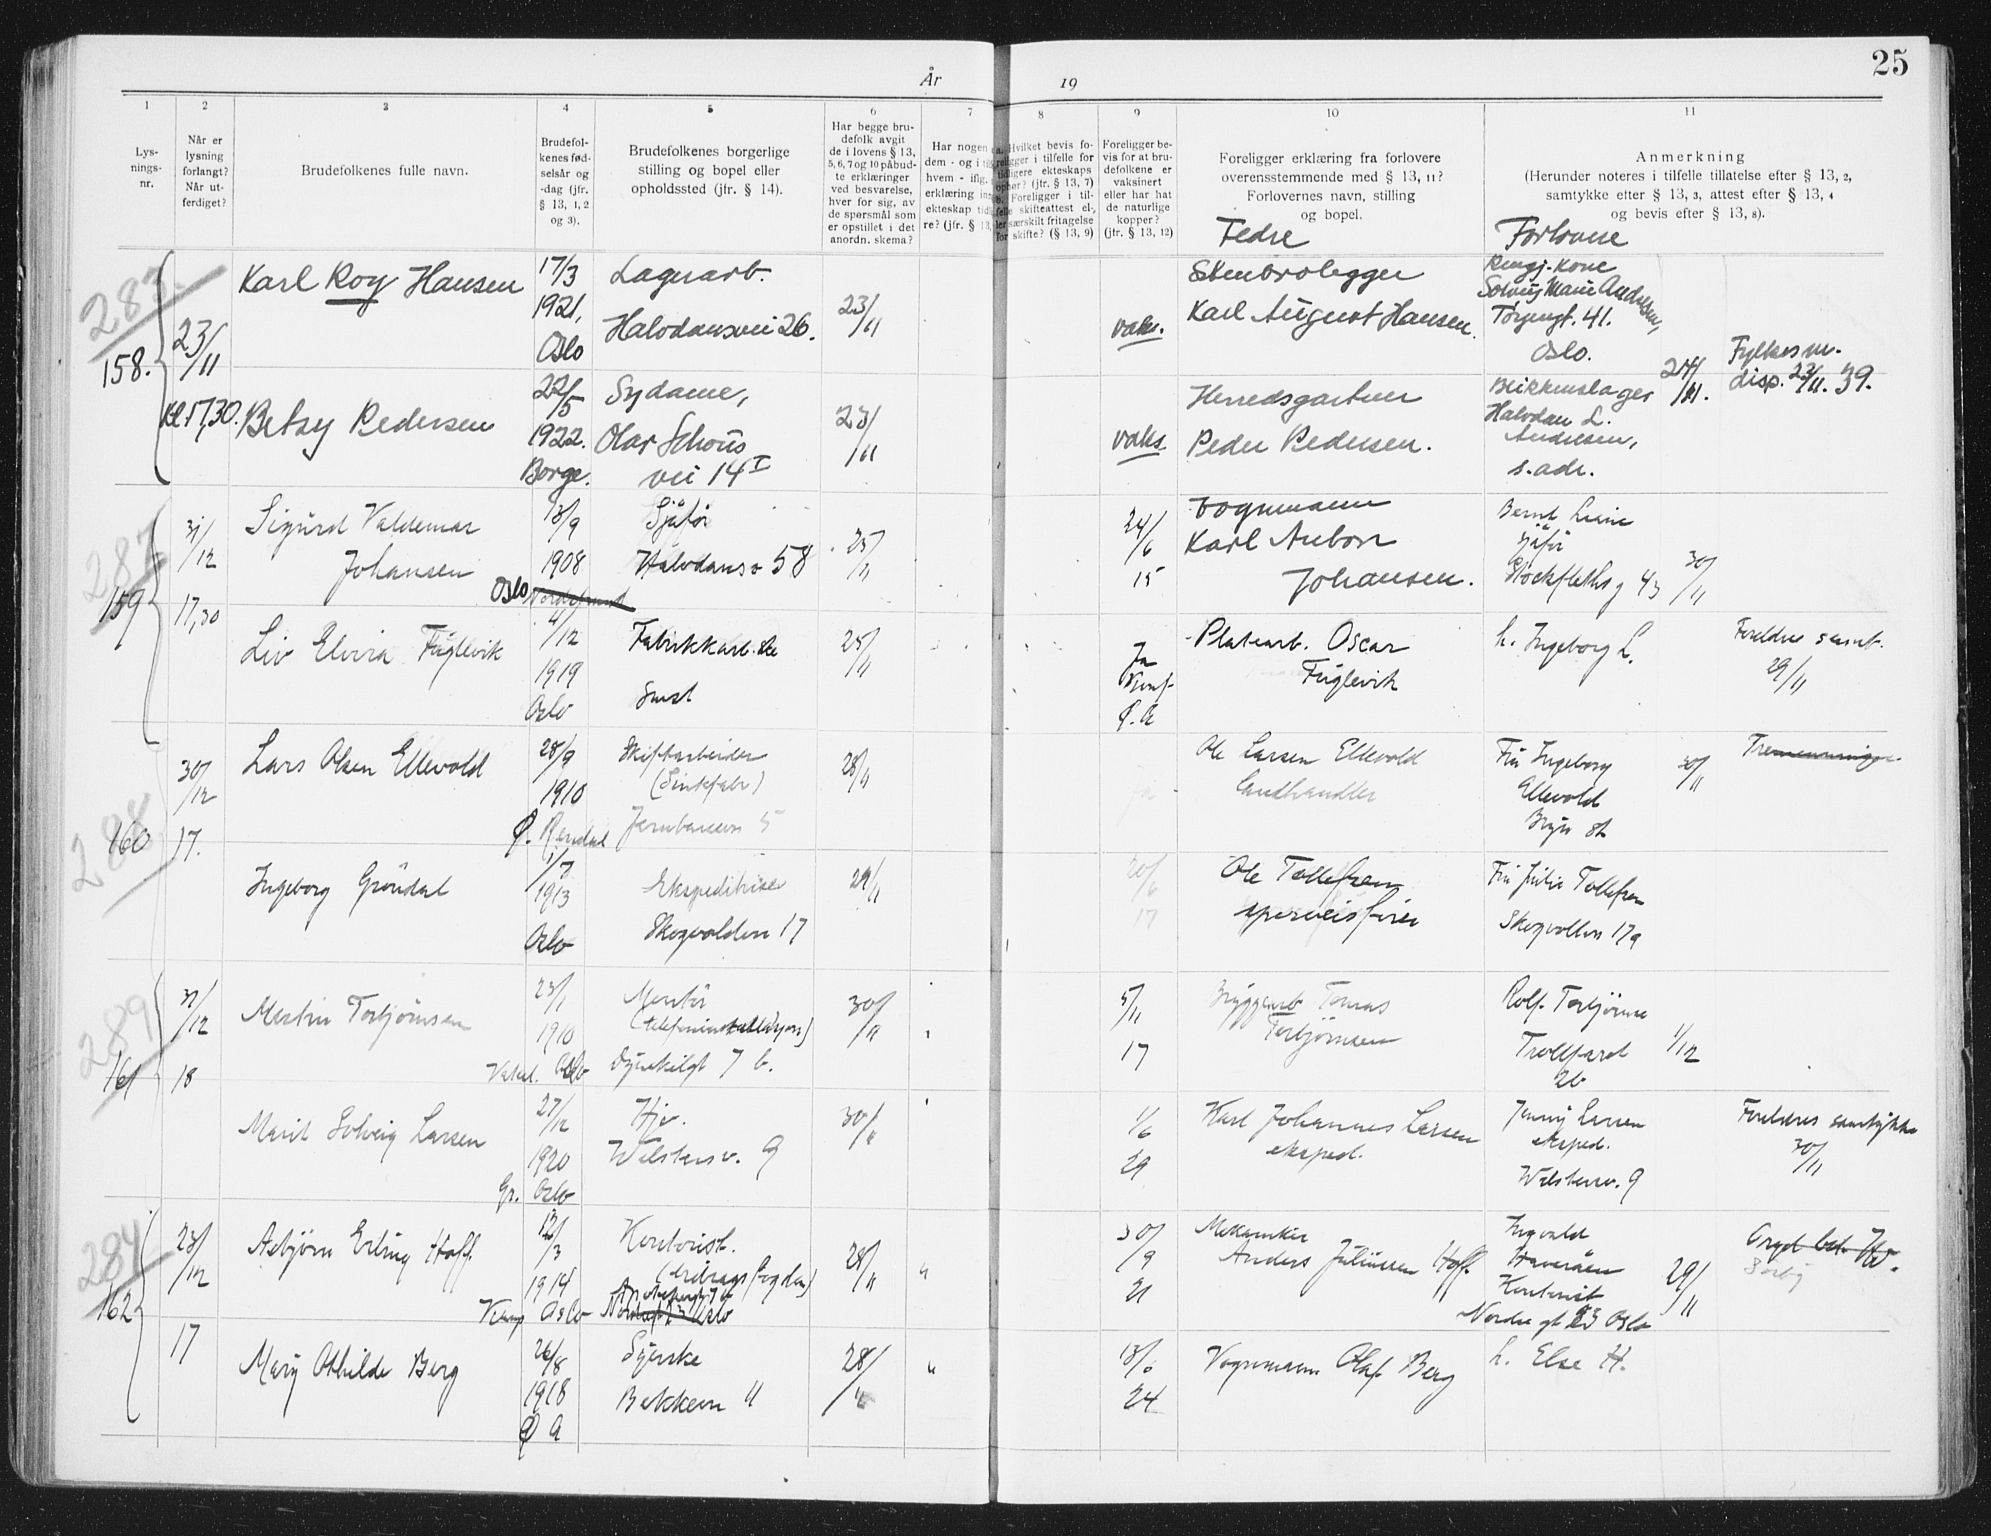 25
År 19
1 2 3 4 5 6 7 8 9 10 11
Lys-
nings-
nr.
Når er
lysning
forlangt?
Når ut-
ferdiget?
Brudefolkenes fulle navn.
Brudefol-
kenes fød-
selsår og
-dag (jfr.
§ 13, 1, 2
og 3).
Brudefolkenes borgerlige
stilling og bopel eller
opholdssted (jfr. § 14).
Har begge bru-
defolk avgit
de i lovens § 13,
5, 6, 7 og 10 påbud-
te erklæringer
ved besvarelse,
hver for sig, av
de spørsmål som
er opstillet i det
anordn. skema?
Har nogen
dem - og i
hvem - iflg.
erklæring in
ekteskap tid
re? (jfr. § 13,
Hvilket bevis fo-
religger i tilfelle for
tidligere ekteskaps
ophør? (jfr. § 13, 7)
Foreligger i til-
felle skifteattest el-
ler særskilt fritagelse
for skifte? (§ 13, 9)
Foreligger be-
vis for at bru-
defolkene er
vaksinert
eller har hat
de naturlige
kopper?
(jfr. § 13, 12)
Foreligger erklæring fra forlovere
overensstemmende med § 13, 11?
Forlovernes navn, stilling
og bopel.
Fedre
Anmerkning
(Herunder noteres i tilfelle tillatelse efter § 13, 2,
samtykke efter § 13, 3, attest efter § 13, 4
og bevis efter § 13, 8).
Forlovere
158.
23/11
kl 17,30.
Karl Roy Hansen
17/3
1921,
Oslo
Lagerarb.
Halvdansvei 26.
23/11
vaks.
Stenbrolegger
Karl August Hansen.
Rengj. kone
Solveig Marie Andresen,
Torggt. 41.
Oslo.
24/11.
Fylkesm.
disp. 23/11. 39.
Betsy Pedersen
22/5
1922.
Borge.
Sydame,
Olav Schous
vei 14 I
23/11
vaks.
Herredsgartner
Peder Pedersen.
Blikkenslager
Halvdan L.
Andresen,
s. adr.
287
159
31/12
17,30
Sigurd Valdemar
Johansen
13/9
1908
Oslo
Sjåfør
Halvdansv 58
25/11
24/6
15
Vognmann
Karl Anton
Johansen.
Bernt
Sjåfør
Stockflethsg 43
30/11
Liv Elvira Fuglevik
4/12
1919
Oslo
Fabrikkarb.
25/11
Ja
Platearb. Oscar
Fuglevik
h. Ingeborg L.
Foreldres samt.
29/11
288
160
30/12
17.
Lars Olsen Ellevold
28/9
1910
Ø. Rendal
Skiftarbeider
(Sinkfabr)
Jernbanevn 5
28/11
Ja
Ole Larsen Ellevold
landhandler
Fru Ingeborg
Ellevold
30/11
Tremenninger
Ingeborg Grøndal
1/7
1913
Oslo
Ekspeditrise
Skogvolden 17
29/11
20/6
17
Ole Tollefsen
sporveisfører
Fru Julie Tollefsen
Skogvollen 17a
289
161
31/12
18
Martin Torbjørnsen
23/1
1910
Oslo
Montør
(telefoninstallasjon)
Dynekilgt 7 b.
30/11
5/11
17
Bryggearb Tomas
Torbjørnsen
Rolf Torbjørnsen
Trollfaret
2b
1/12
Marit Solveig Larsen
27/12
1920
Gr. Oslo
Hjv.
30/11
1/6
29
Karl Johannes Larsen
eksped.
Jenny Larsen
eksped.
Foreldres samtykke
30/11
284
162
23/12
17
Asbjørn Erling Hoff.
12/3
1914
Kamp Oslo
Kontorist.
(bidragsfogden)
28/11
"
30/9
21
Mekaniker
Anders Juliussen Hoff.
Ingvald
Haveråen
Kontorist
Nordre gt 23 Oslo
29/11
Mary Othilde Berg
26/8
1918
Ø A
Syerske
Bekkevn 11
28/11
"
18/6
24
Vognmann Olaf Berg
h. Else H.